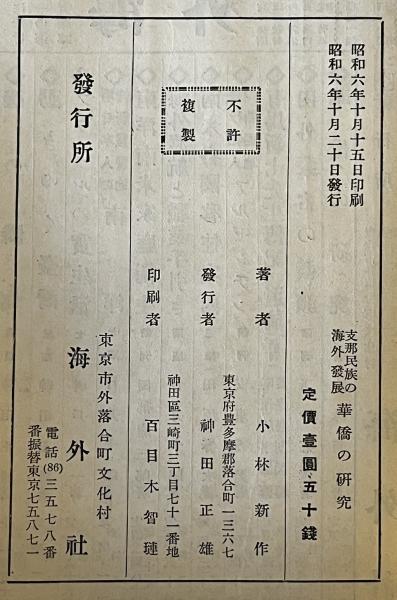 昭和六年十月十五日印刷
昭和六年十月二十日發行
支那民族の
海外發展
華僑の研究
定價壹圓五十錢
不許
複製
著者 小林新作
東京府豐多摩郡落合町一三六七
發行者 神田正雄
神田區三崎町三丁目七十一番地
印刷者 百目木智璉
發行所
東京市外落合町文化村
海外社
電話(86)三五七八番
振替東京七五八七一番